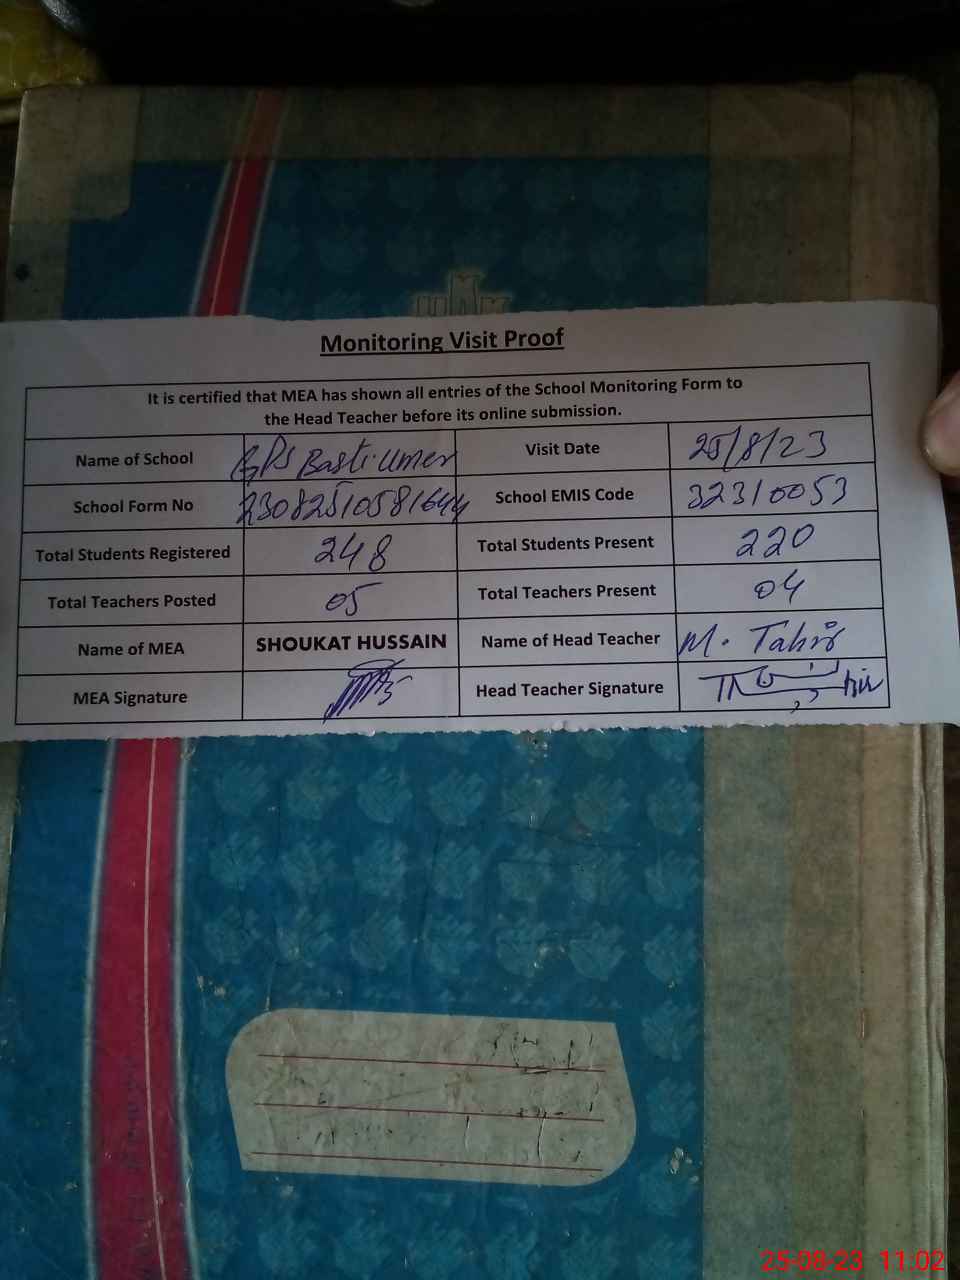 Monitoring Visit Proof
It is certified that MEA has shown all entries of the School Monitoring Form to
the Head Teacher before its online submission.
Name of School GPS Basti Umer Visit Date 25/8/23
School Form No 23082510581644 School EMIS Code 32310053
Total Students Registered 248 Total Students Present 220
Total Teachers Posted 05 Total Teachers Present 04
Name of MEA SHOUKAT HUSSAIN Name of Head Teacher M. Tahir
MEA Signature Head Teacher Signature
25-08-23 11:02